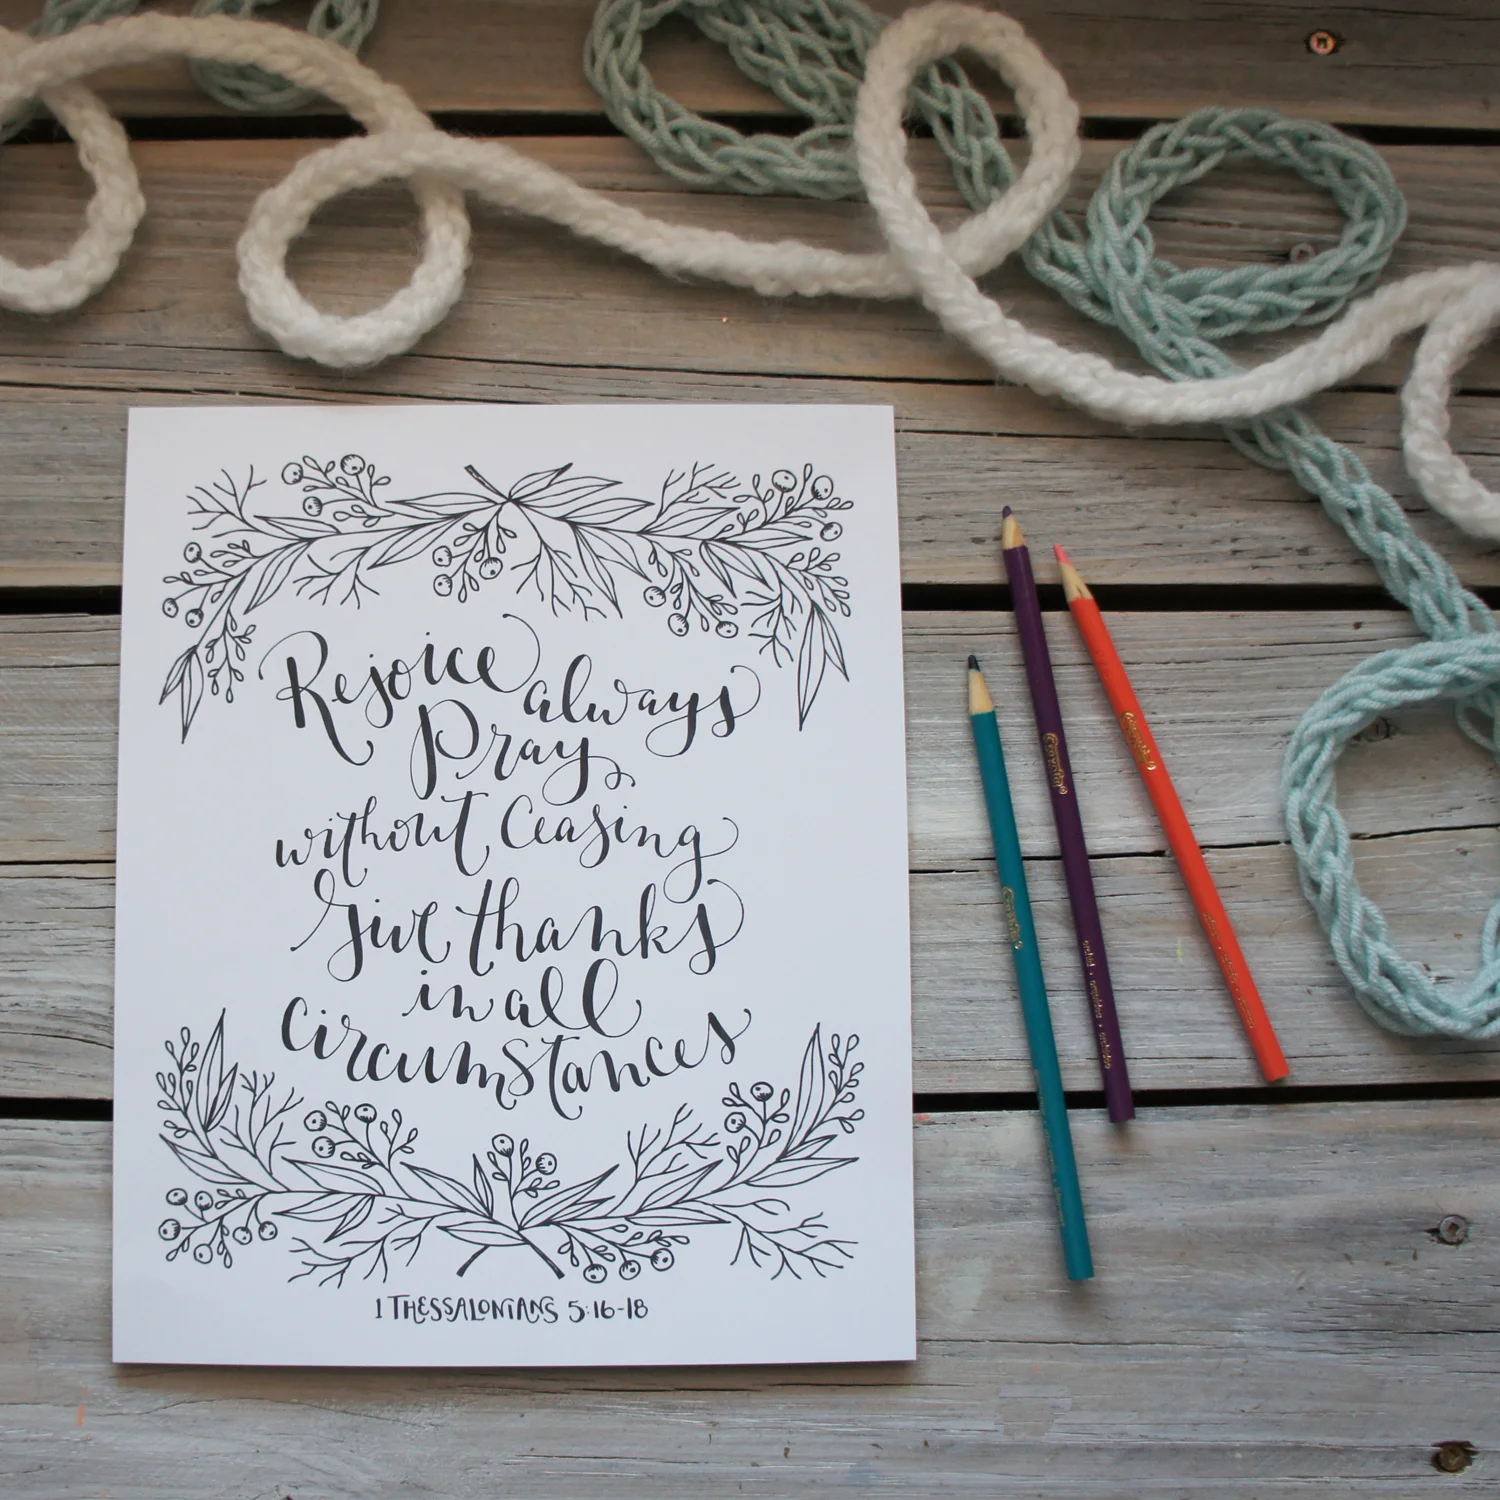 Rejoice always
Pray
without Ceasing
Give thanks
in all
Circumstances
1 THESSALONIANS 5:16-18
Crayola
Crayola
Crayola